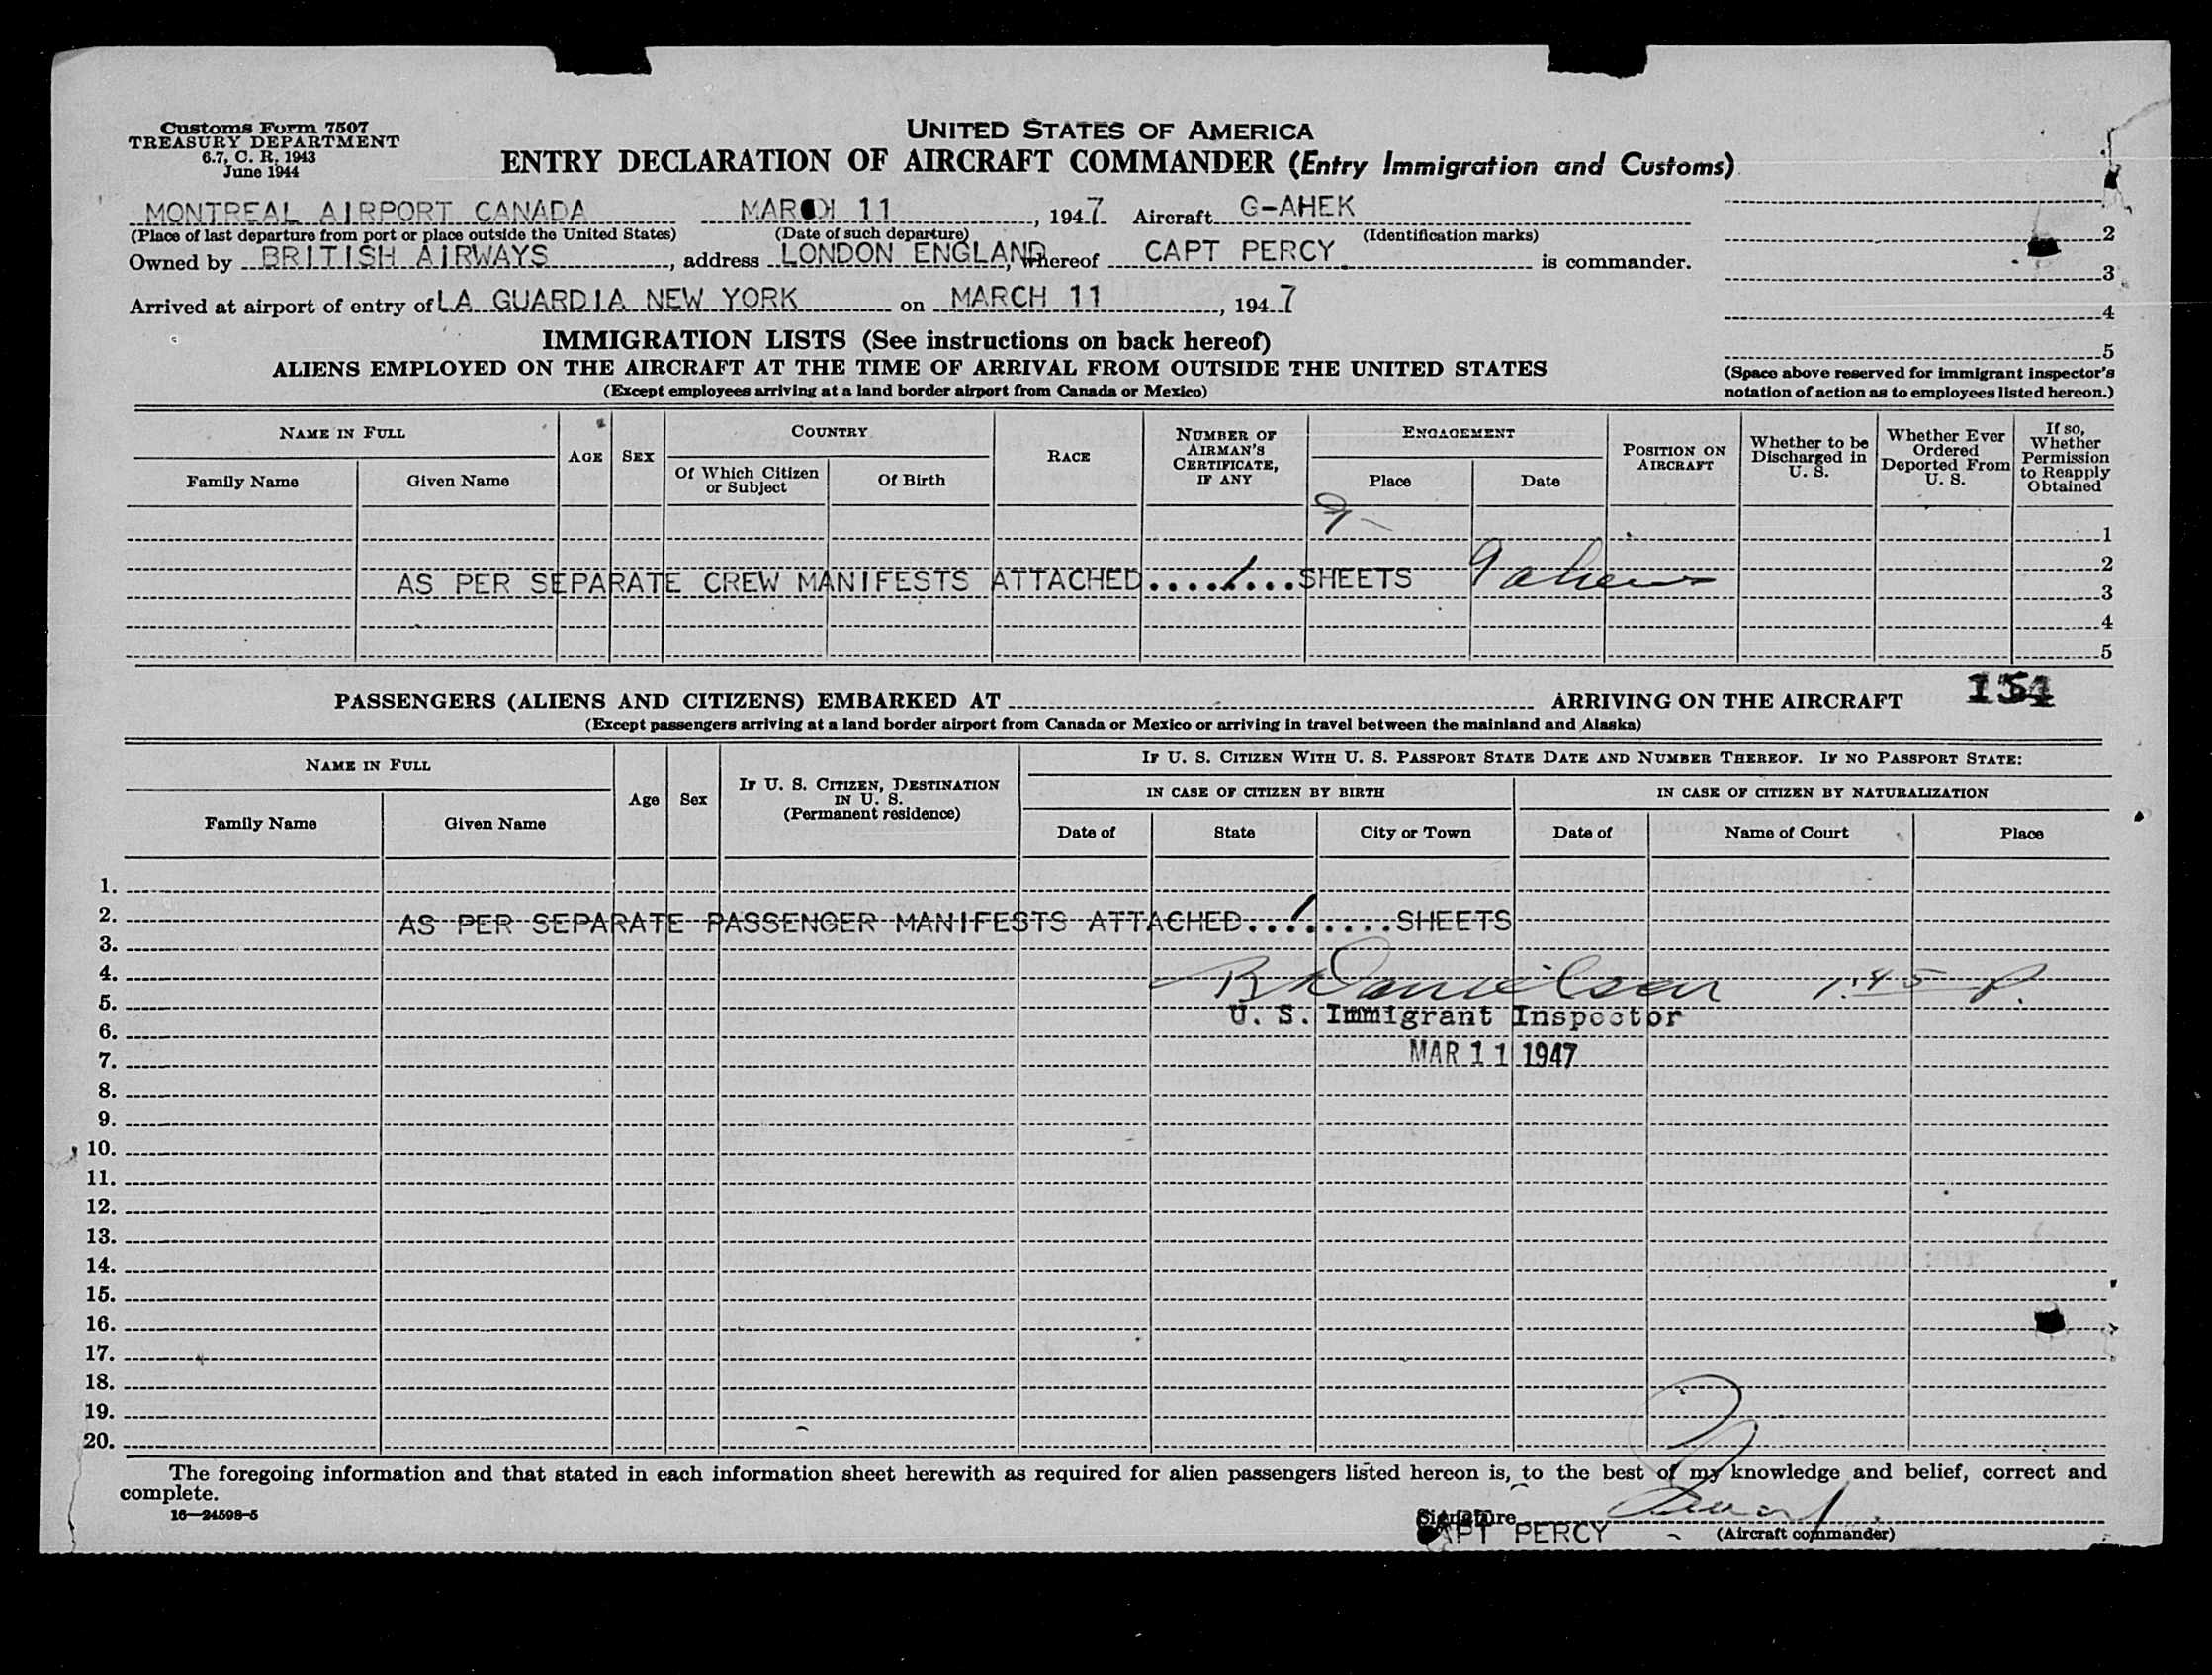 Customs Form 7507
TREASURY DEPARTMENT
6.7, C. R. 1943
June 1944
UNITED STATES OF AMERICA
ENTRY DECLARATION OF AIRCRAFT COMMANDER (Entry Immigration and Customs)
MONTREAL AIRPORT CANADA MARCH 11, 1947 Aircraft G-AHEK
(Place of last departure from port or place outside the United States) (Date of such departure) (Identification marks)
Owned by BRITISH AIRWAYS, address LONDON ENGLAND, whereof CAPT PERCY. is commander.
Arrived at airport of entry of LA GUARDIA NEW YORK on MARCH 11, 1947
2
3
4
5
(Space above reserved for immigrant inspector's
notation of action as to employees listed hereon.)
IMMIGRATION LISTS (See instructions on back hereof)
ALIENS EMPLOYED ON THE AIRCRAFT AT THE TIME OF ARRIVAL FROM OUTSIDE THE UNITED STATES
(Except employees arriving at a land border airport from Canada or Mexico)
NAME IN FULL
Family Name
Given Name
AGE
SEX
COUNTRY
Of Which Citizen
or Subject
Of Birth
RACE
NUMBER OF
AIRMAN'S
CERTIFICATE,
IF ANY
ENGAGEMENT
Place
Date
POSITION ON
AIRCRAFT
Whether to be
Discharged in
U. S.
Whether Ever
Ordered
Deported From
U. S.
If so,
Whether
Permission
to Reapply
Obtained
1
2
AS PER SEPARATE CREW MANIFESTS ATTACHED....1...SHEETS 9 aliens
3
4
5
PASSENGERS (ALIENS AND CITIZENS) EMBARKED AT ARRIVING ON THE AIRCRAFT 154
(Except passengers arriving at a land border airport from Canada or Mexico or arriving in travel between the mainland and Alaska)
NAME IN FULL
Family Name
Given Name
Age
Sex
IF U. S. CITIZEN, DESTINATION
IN U. S.
(Permanent residence)
IF U. S. CITIZEN WITH U. S. PASSPORT STATE DATE AND NUMBER THEREOF. IF NO PASSPORT STATE:
IN CASE OF CITIZEN BY BIRTH
Date of
State
City or Town
IN CASE OF CITIZEN BY NATURALIZATION
Date of
Name of Court
Place
1.
2. AS PER SEPARATE PASSENGER MANIFESTS ATTACHED...1.....SHEETS
3.
4. R Danielson 1:45 P.
5.
U. S. Immigrant Inspector
6.
7. MAR 11 1947
8.
9.
10.
11.
12.
13.
14.
15.
16.
17.
18.
19.
20.
The foregoing information and that stated in each information sheet herewith as required for alien passengers listed hereon is, to the best of my knowledge and belief, correct and
complete.
16—24598-5
Signature
CAPT PERCY (Aircraft commander)